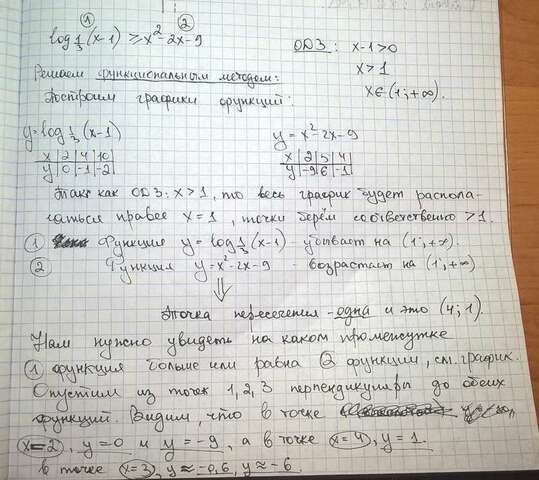 ① ②
log 1/3 (x-1) ≥ x² - 2x - 9
ОДЗ: x-1>0
x>1
x∈(1; +∞).
Решаем функциональным методом:
Построим графики функций:
y=log 1/3 (x-1)
x | 2 | 4 | 10
y | 0 | -1 | -2
y = x² - 2x - 9
x | 2 | 5 | 4
y | -9 | 6 | -1
Так как ОДЗ: x>1, то весь график будет распола-
гаться правее x=1, точки берём соответственно >1.
① Функция y = log 1/3 (x-1) - убывает на (1; +∞).
② Функция y = x² - 2x - 9 - возрастает на (1; +∞)
⇓
Точка пересечения - одна и это (4; 1).
Нам нужно увидеть на каком промежутке
① функция больше или равна ② функции, см. график.
Опустим из точек 1, 2, 3 перпендикуляры до обеих
функций. Видим, что в точке
x=2, y=0 и y=-9, а в точке x=4, y=1.
в точке x=3, y≈-0,6, y≈-6.